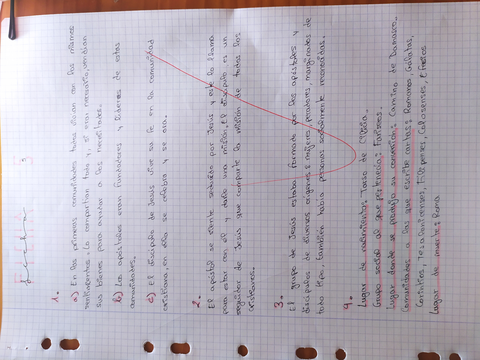 Fecha 3
1.
a) En las primeras comunidades todos vivían con los mismos
sentimientos. Lo compartían todo y, si era necesario, vendían
sus bienes para ayudar a los necesitados.
b) Los apóstoles eran fundadores y líderes de estas
comunidades.
c) El discípulo de Jesús vive su fe en la comunidad
cristiana, en ella se celebra y se ora.
2.
El apóstol se siente seducido por Jesús y este le llama
para estar con él y darle una misión. El discípulo es un
seguidor de Jesús que comparte la misión de todos los
cristianos.
3.
El grupo de Jesús estaba formado por los apóstoles y
discípulos de diversos orígenes: mujeres, pecadores, marginados de
todo tipo, también había personas socialmente
4.
Lugar de nacimiento: Tarso de Cilicia.
Grupo social al que pertenecía: Fariseos.
Lugar donde se produjo su conversión: Camino de Damasco.
Comunidades a las que escribe cartas: Romanos, Gálatas,
Corintios, Tesalonicenses, Filipenses, Colosenses, Efesios
Lugar de muerte: Roma